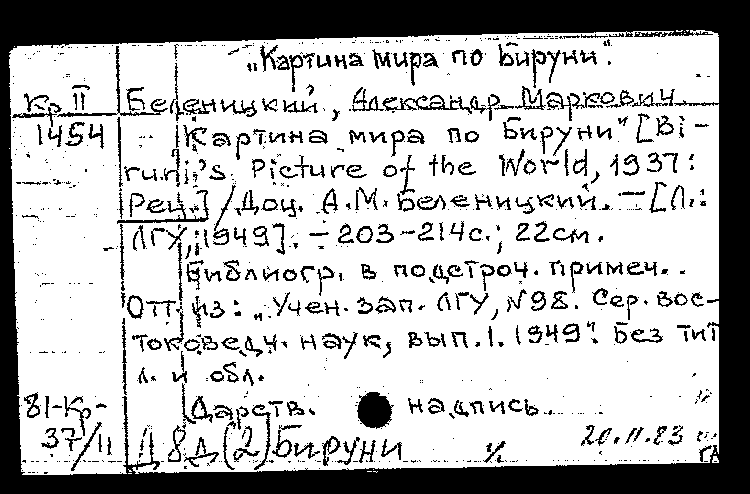 „Картина мира по Бируни".
Кр II Беленицкий, Александр Маркович.
1454 Картина мира по Бируни" [Bi-
runi's Picture of the World, 1937:
Рец.] / Доц. А.М. Беленицкий. — [Л.:
ЛГУ, 1949]. - 203-214с.; 22см.
Библиогр. в подстроч. примеч..
Отт. из: „Учен. зап. ЛГУ, №98. Сер. вос-
токоведч. наук, вып. 1. 1949". Без тит
л. и обл.
81-Кр- Дарств. надпись.
37/II Д8д(2)Бируни 20.11.83